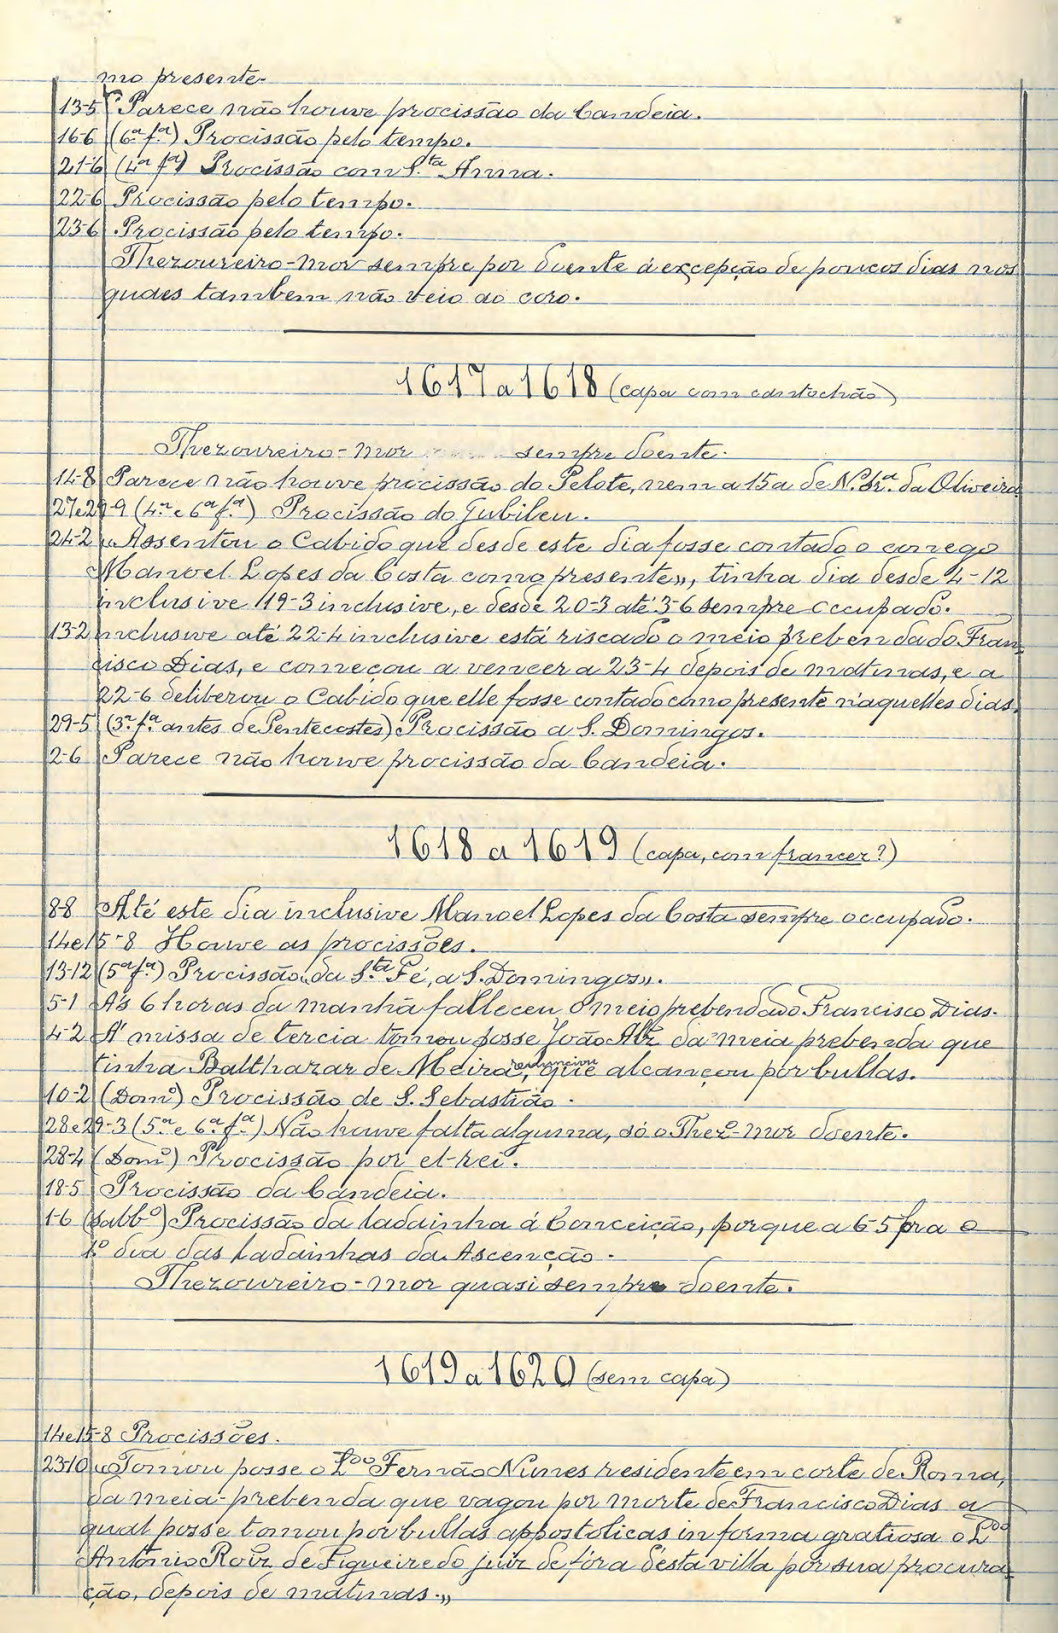 mo presente.
13-5 Parece não houve procissão da Candeia.
16-6 (6.ª f.ª) Procissão pelo tempo.
21-6 (4.ª f.ª) Procissão com S.ta Anna.
22-6 Procissão pelo tempo.
23-6 Procissão pelo tempo.
Thezoureiro-mor sempre por doente á excepção de poucos dias nos
quaes tambem não veio ao coro.
1617 a 1618 (capa com cantochão)
Thezoureiro-mor sempre doente.
14-8 Parece não houve procissão do Pelote, nem a 15 a de N. Sr.ª da Oliveira
27 e 29-9 (4.ª e 6.ª f.ª) Procissão do Jubileu.
24-2 «Assentou o Cabido que desde este dia fosse contado o conego
Manoel Lopes da Costa como presente», tinha dia desde 4-12
inclusive 119-3 inclusive, e desde 20-3 até 3-6 sempre occupado.
13-2 inclusive até 22-4 inclusive está riscado o meio prebendado Fran-
cisco Dias, e começou a vencer a 23-4 depois de matinas, e a
22-6 deliberou o Cabido que elle fosse contado como presente n'aquelles dias.
29-5 (3.ª f.ª antes de Pentecostes) Procissão a S. Domingos.
2-6 Parece não houve procissão da Candeia.
1618 a 1619 (capa, com francez?)
8-8 Até este dia inclusive Manoel Lopes da Costa sempre occupado.
14 e 15-8 Houve as procissões.
13-12 (5ª f.ª) Procissão «da S.ta Fé, a S. Domingos».
5-1 Ás 6 horas da manhã falleceu o meio prebendado Francisco Dias.
4-2 Á missa de tercia tomou posse João Alz da meia prebenda que
tinha Balthazar de Meira, renunciou que alcançou por bullas.
10-2 (Dom.º) Procissão de S. Sebastião.
28 e 29-3 (5.ª e 6.ª f.ª) Não houve falta alguma, só o Thez.º-mor doente.
28-4 (Dom.º) Procissão por el-rei.
18-5 Procissão da Candeia.
1-6 (Sabb.º) Procissão da ladainha á Conceição, porque a 6-5 fôra o
1.º dia das Ladainhas da Ascenção.
Thezoureiro-mor quasi sempre doente.
1619 a 1620 (sem capa)
14 e 15-8 Procissões.
23-10 «Tomou posse o L.do Fernão Nunes residente em corte de Roma,
da meia-prebenda que vagou por morte de Francisco Dias a
qual posse tomou por bullas appostolicas in forma gratiosa o L.do
Antonio Roiz de Figueiredo juiz de fóra d'esta villa por sua procura-
ção, depois de matinas.»